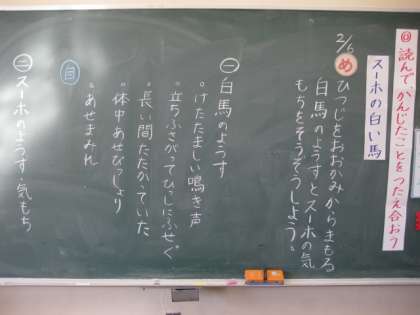 ◎読んで、かんじたことをつたえ合おう
スーホの白い馬
2/6
め ひつじをおおかみからまもる
白馬のようすとスーホの気
もちをそうぞうしよう。
一 白馬のようす
・けたたましい鳴き声
・立ちふさがってひっしにふせぐ
・長い間たたかっていた
・体中あせびっしょり
・あせまみれ
二 スーホのようす・気もち